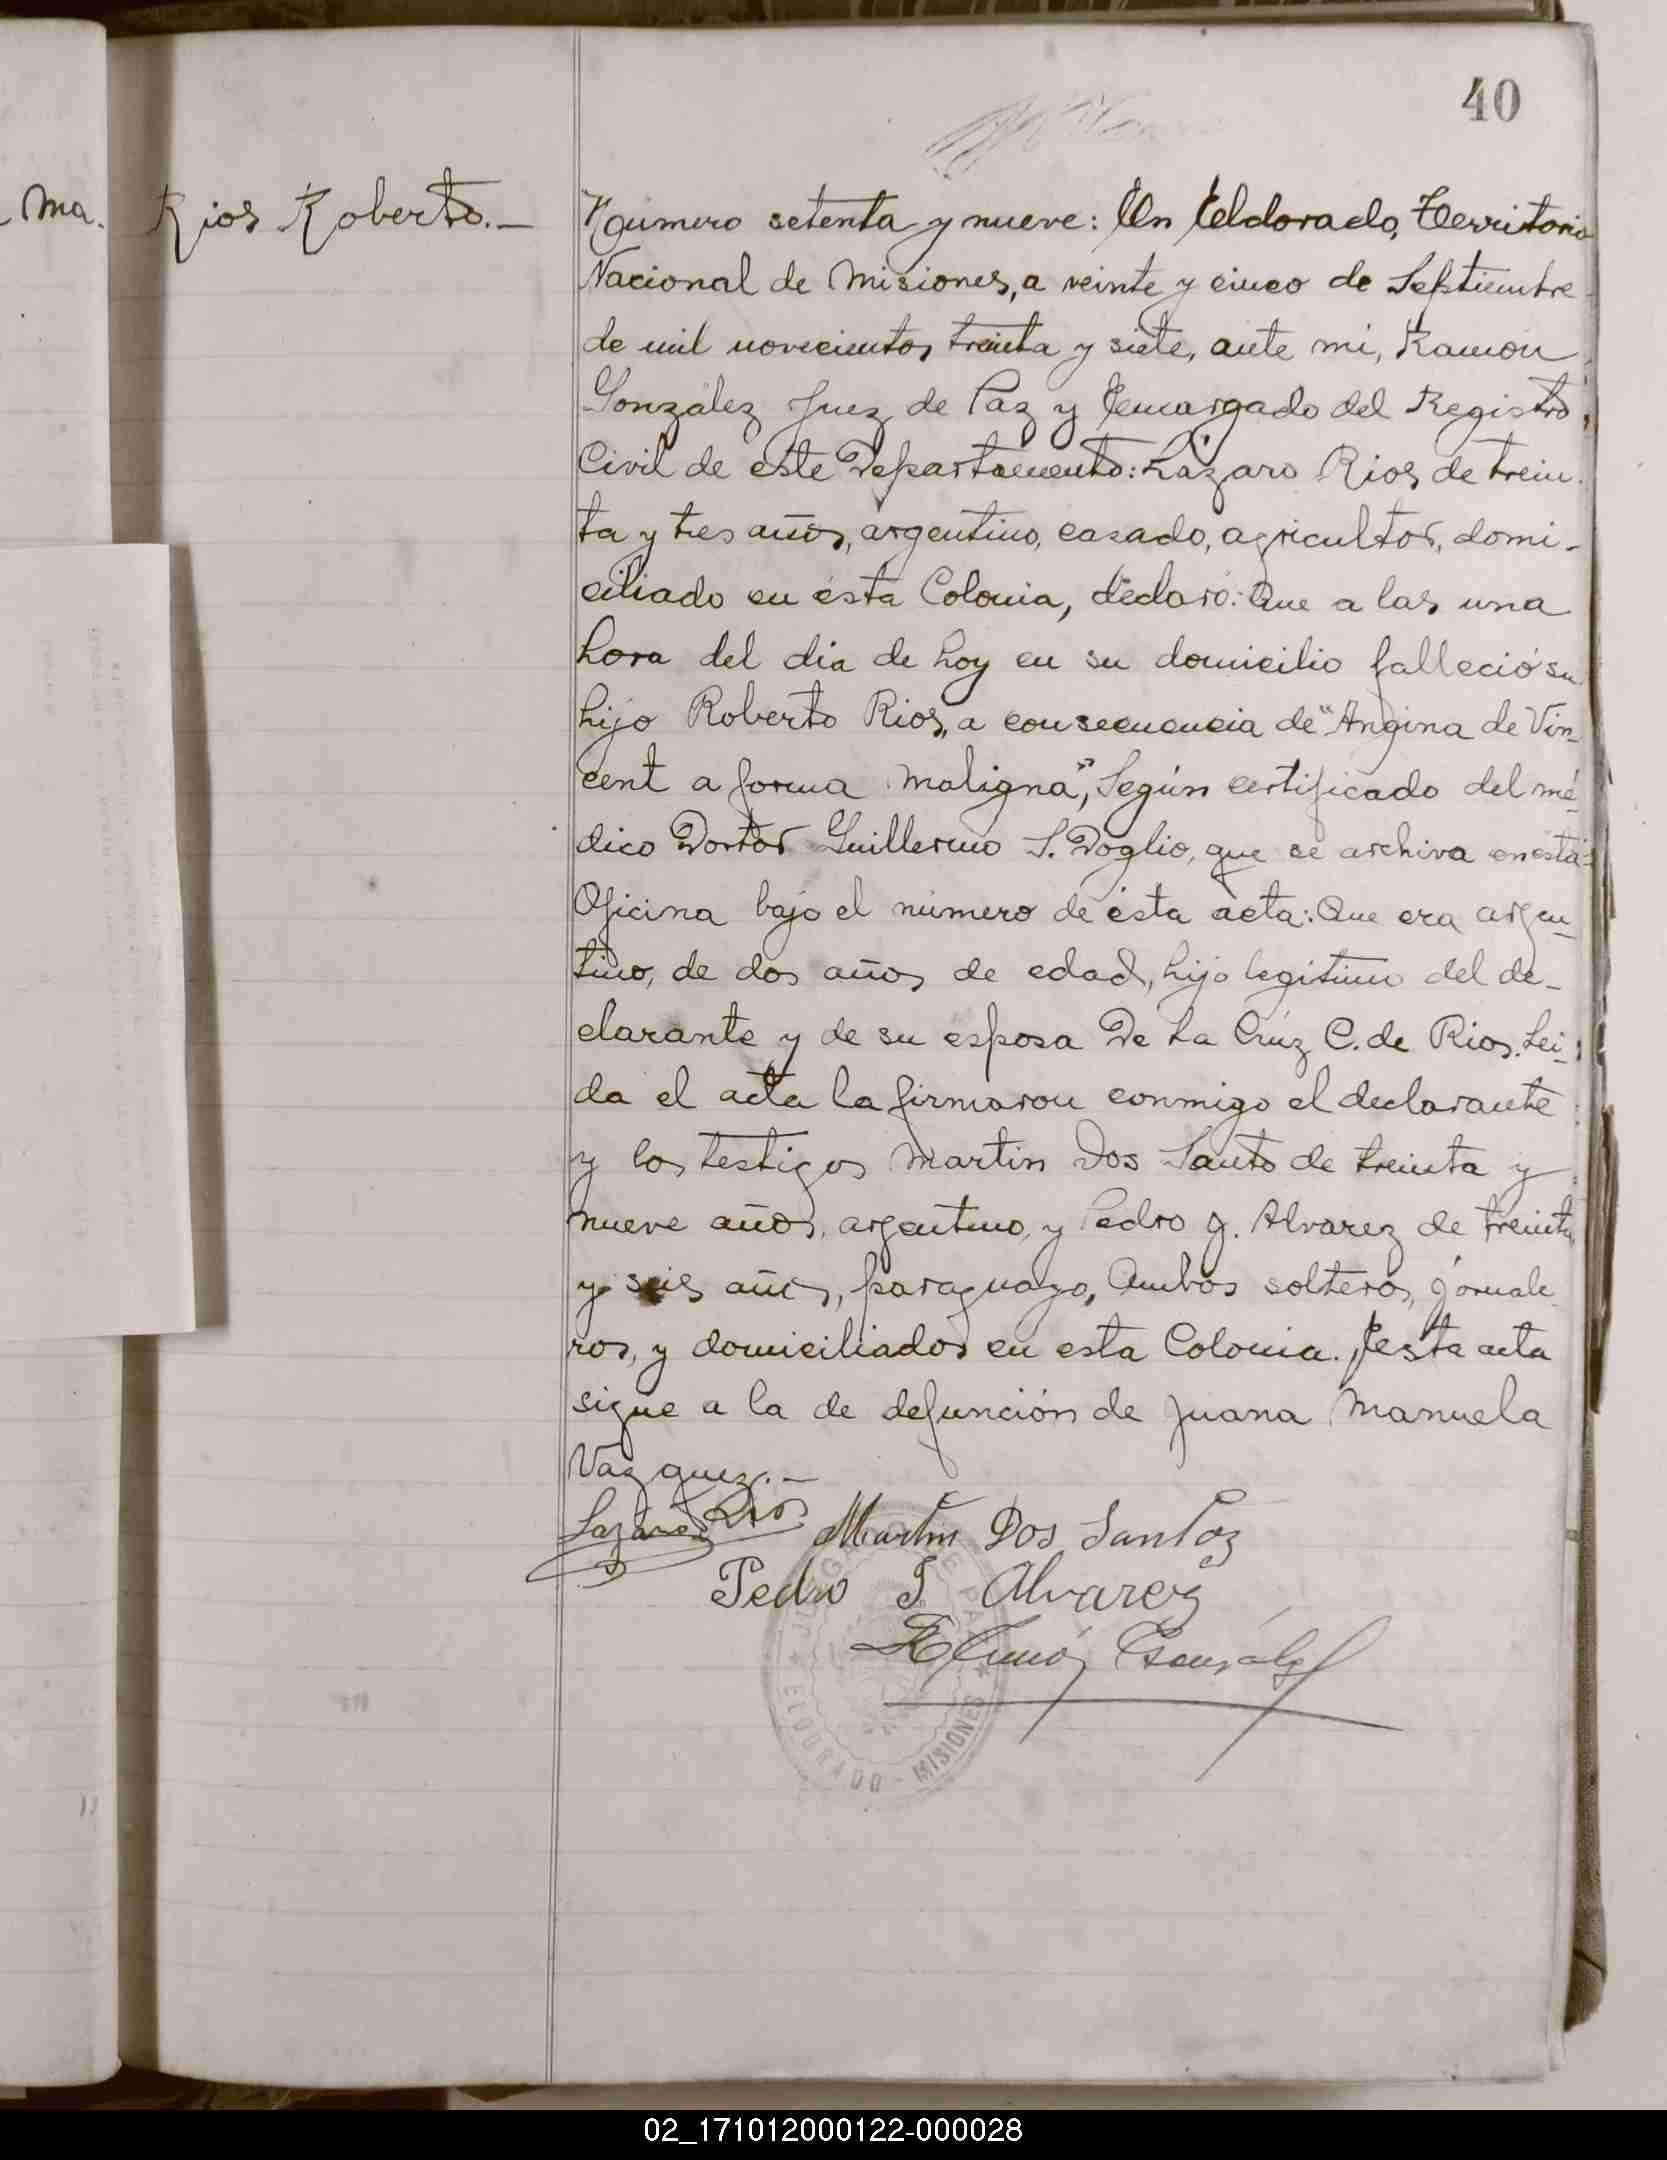 40
Ma.
Rios Roberto.—
Número setenta y nueve: En Eldorado, Territorio
Nacional de Misiones, a veinte y cinco de Septiembre
de mil novecientos treinta y siete, ante mi, Ramón
González Juez de Paz y Encargado del Registro
Civil de este Departamento: Lázaro Rios de trein-
ta y tres años, argentino, casado, agricultor, domi-
ciliado en ésta Colonia, declaró: Que a las una
hora del dia de hoy en su domicilio falleció su
hijo Roberto Rios, a consecuencia de "Angina de Vin-
cent a forma maligna", Según certificado del mé-
dico Doctor Guillermo S. Doglio, que se archiva en ésta
Oficina bajo el número de ésta acta: Que era argen-
tino, de dos años de edad, hijo legitimo del de-
clarante y de su esposa De La Crúz C. de Rios. Lei-
da el acta la firmaron conmigo el declarante
y los testigos Martin Dos Santo de treinta y
nueve años, argentino, y Pedro J. Alvarez de treinta
y seis años, paraguayo, Ambos solteros, jornale-
ros, y domiciliados en esta Colonia. Esta acta
sigue a la de defunción de Juana Manuela
Vazquez.—
Lazaro Rios Martin Dos Santos
Pedro J Alvarez
Ramón González
JUZGADO DE PAZ
ELDORADO - MISIONES
02_171012000122-000028